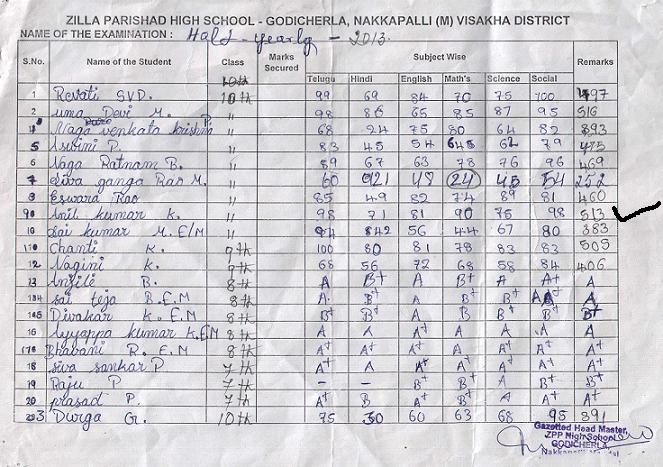 ZILLA PARISHAD HIGH SCHOOL - GODICHERLA, NAKKAPALLI (M) VISAKHA DISTRICT
NAME OF THE EXAMINATION : Half - yearly - 2013.
S.No. Name of the Student Class Marks Secured Subject Wise Remarks
Telugu Hindi English Math's Science Social
1 Revati S.V.D. 10th 99 69 84 70 75 100 497
2 uma Devi M. " 98 86 65 85 87 95 516
Naga venkata krishna P. " 68 24 75 80 64 82 393
5 Asvini P. " 83 45 54 62 79
6 Naga Ratnam B. " 89 67 63 78 76 96 469
7 Siva ganga Rao M. " 60 48 24 45 54 252
Eswara Rao " 85 49 82 74 89 81 460
Anil kumar K. " 98 71 81 90 75 98 513
10 Sai kumar M. E/M " 56 44 67 80 383
Chanti K. 9th 100 80 81 78 83 83 505
12 Nagini K. 9th 68 56 72 68 58 84 406
13 B. 8th A B+ A A A+ A
sai teja B.E.M 8th A B+ A B+ B+ A
Divakar K. E.M 8th B+ B+ A B+ B+ B+ B+
Ayyappa kumar K.E.M 8th A A A+ A A A A
Bhavani R. E.M 8th A+ A+ A A+ A+ A+ A+
18 Siva sankar P 7th A+ A A+ A+ A A+ A+
19 Raju P 7th - - B+ B+ A B+ B+
20 prasad P. 7th A B A A+ A A+ A+
Durga G. 10th 75 30 60 63 68 95 391
Gazetted Head Master,
ZPP High School
GODICHERLA,